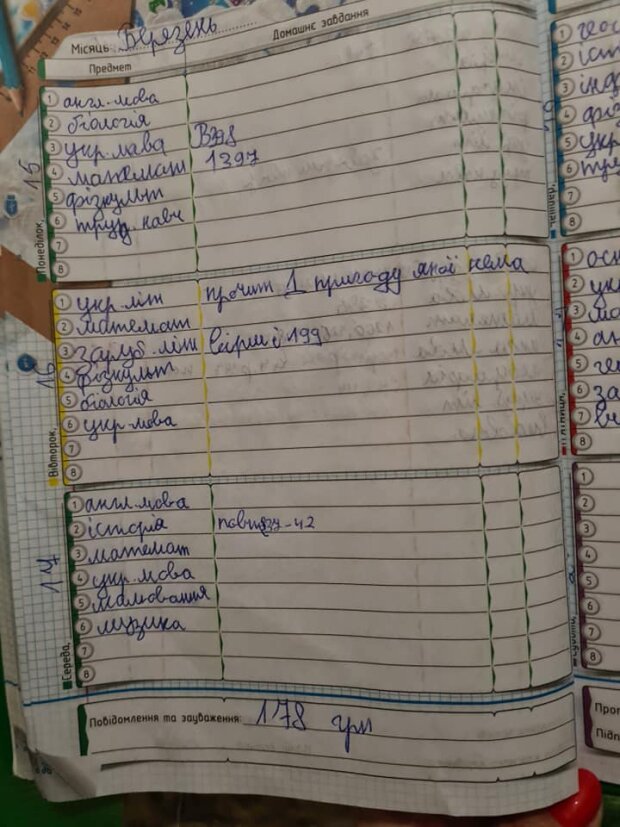 Місяць Березень
Предмет Домашнє завдання
15
Понеділок,
1 англ. мова
2 біологія
3 укр. мова
4 математ 1397
5 фізкульт
6 труд. навч
7
8
16
Вівторок,
1 укр. літ прочит 1 пригоду якої нема
2 математ
3 заруб. літ вірші 199
4 фізкульт
5 біологія
6 укр. мова
7
8
17
Середа,
1 англ. мова
2 історія
3 математ
4 укр. мова
5 малювання
6 музика
7
8
Повідомлення та зауваження: 178 грн
1
2
3
4
5
6
7
8
П'ятниця,
1
2
3
4
5
6
7
8
Субота,
1
2
3
4
5
6
7
8